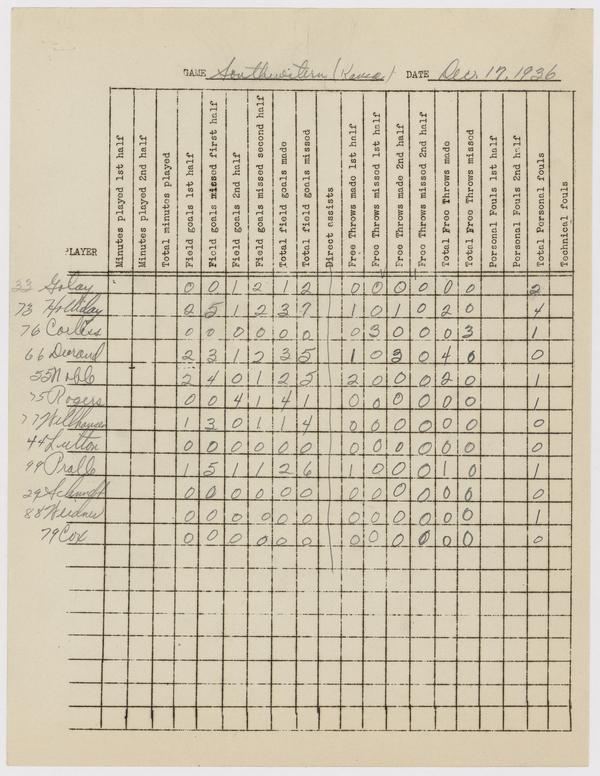 GAME Southwestern (Kansas) DATE Dec. 17, 1936
PLAYER
Minutes played 1st half
Minutes played 2nd half
Total minutes played
Field goals 1st half
Field goals missed first half
Field goals 2nd half
Field goals missed second half
Total field goals made
Total field goals missed
Direct assists
Free Throws made 1st half
Free Throws missed 1st half
Free Throws made 2nd half
Free Throws missed 2nd half
Total Free Throws made
Total Free Throws missed
Personal Fouls 1st half
Personal Fouls 2nd half
Total Personal fouls
Technical fouls
33 Golay 0 0 1 2 1 2 0 0 0 0 0 0 2
73 Holliday 2 5 1 2 3 7 1 0 1 0 2 0 4
76 Corliss 0 0 0 0 0 0 0 3 0 0 0 3 1
66 Durand 2 3 1 2 3 5 1 0 3 0 4 0 0
55 Noble 2 4 0 1 2 5 2 0 0 0 2 0 1
75 Rogers 0 0 4 1 4 1 0 0 0 0 0 0 1
77 1 3 0 1 1 4 0 0 0 0 0 0 0
44 Lutton 0 0 0 0 0 0 0 0 0 0 0 0 0
99 Pralle 1 5 1 1 2 6 1 0 0 0 1 0 1
29 Schmidt 0 0 0 0 0 0 0 0 0 0 0 0 0
88 0 0 0 0 0 0 0 0 0 0 0 0 1
79 Cox 0 0 0 0 0 0 0 0 0 0 0 0 0